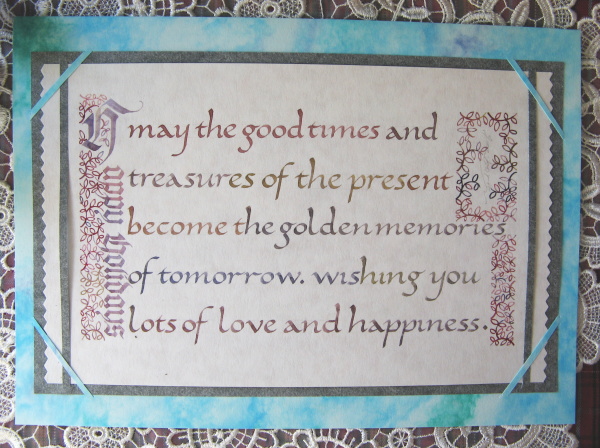 Happy Holidays
may the good times and
treasures of the present
become the golden memories
of tomorrow. wishing you
lots of love and happiness.